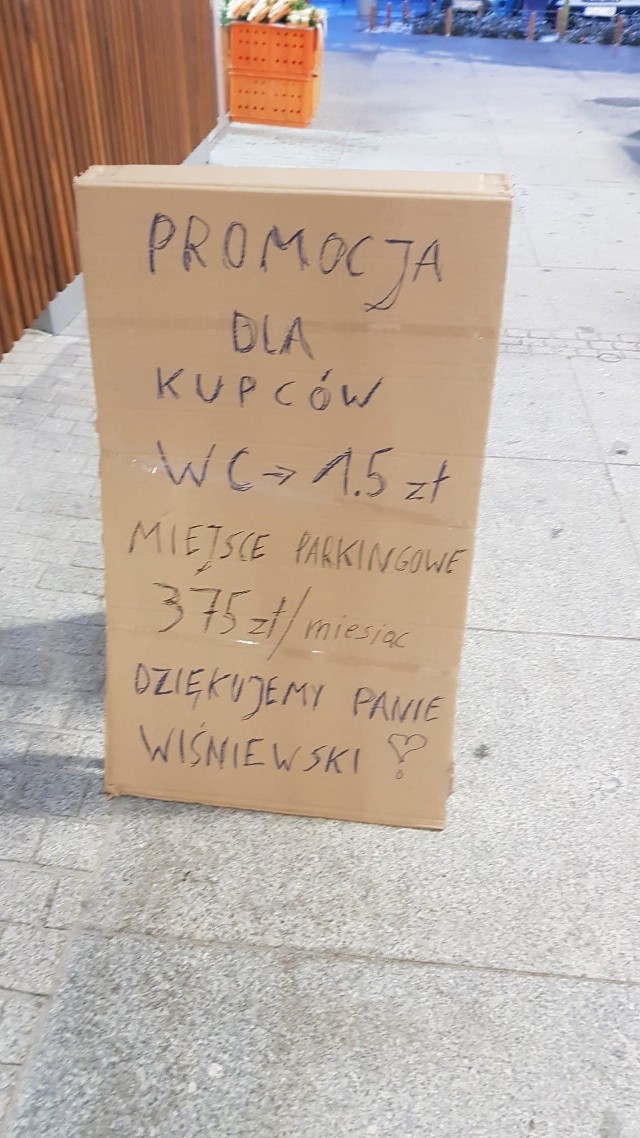 PROMOCJA
DLA
KUPCÓW
WC → 1.5 zł
MIEJSCE PARKINGOWE
375 zł/miesiąc
DZIĘKUJEMY PANIE
WIŚNIEWSKI